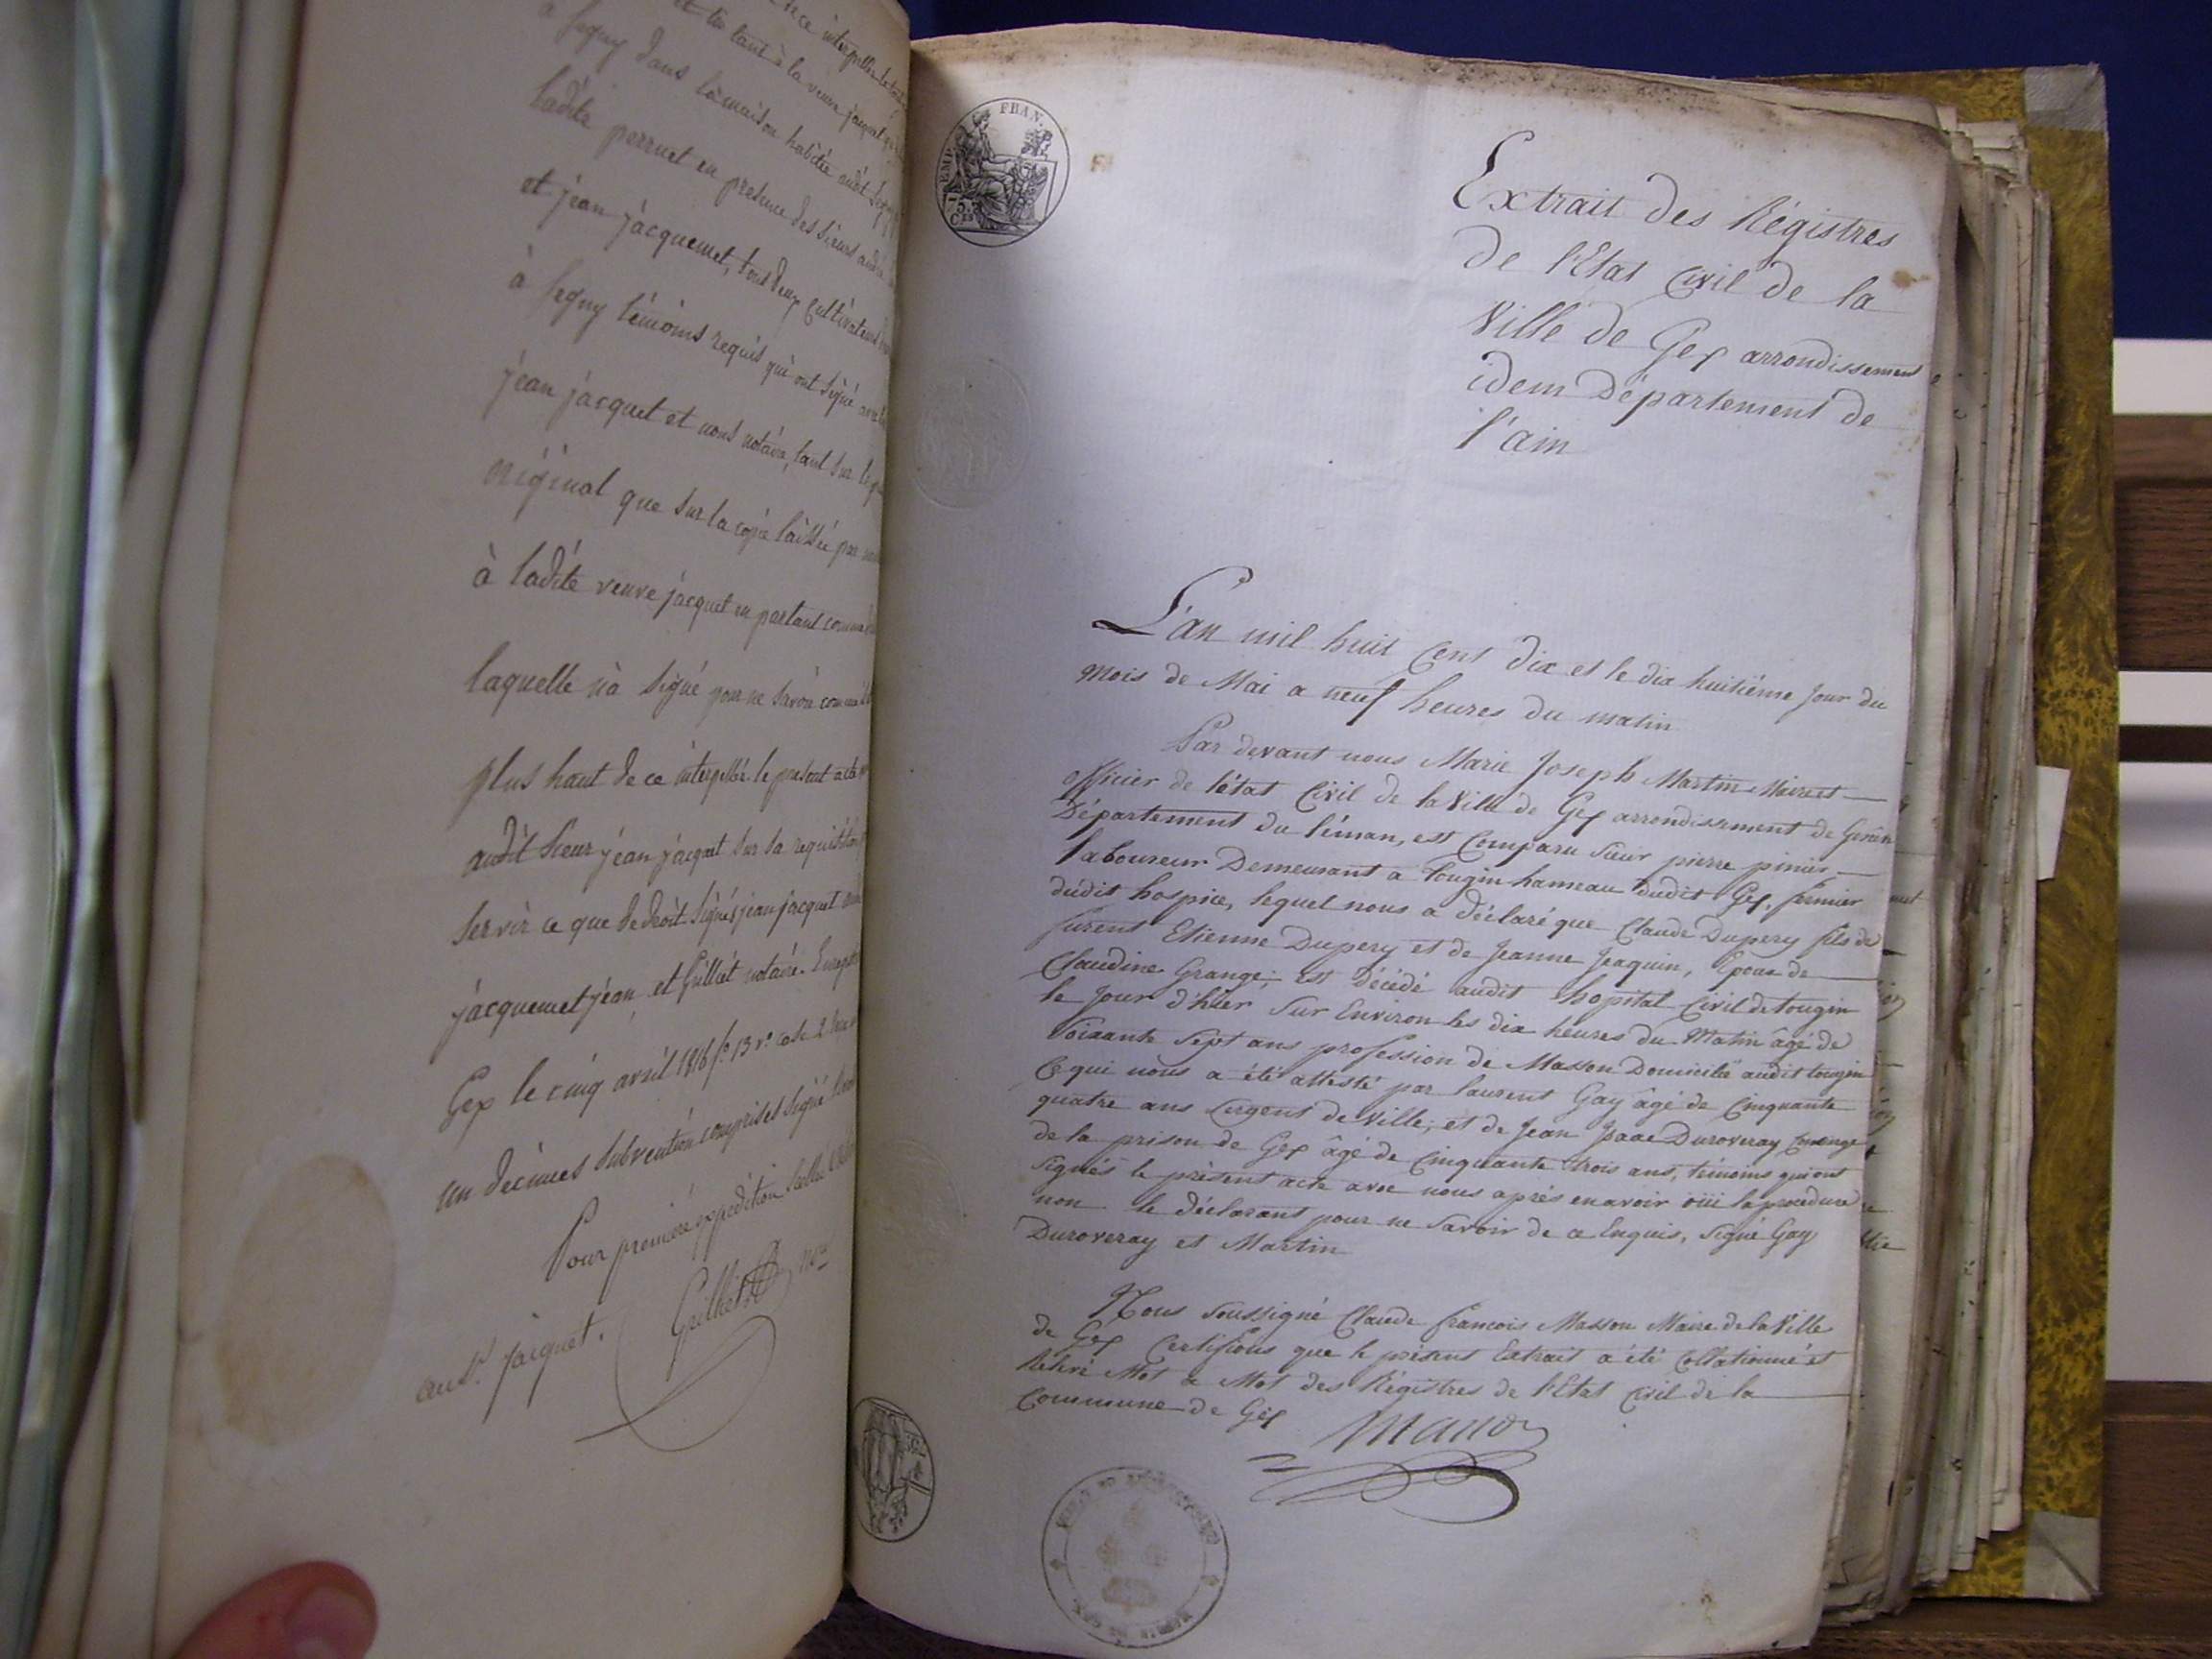 à Segny dans la maison habitée audit Segny
ladite perruet en presence des Sieurs andré
et jean jacquemet, tous deux cultivateurs
à Segny témoins requis qui ont signé avec
jean jacquet et nous notaire, tant sur le
original que sur la copie laissée par
à ladite veuve jacquet en parlant comme
laquelle n'a signé pour ne savoir comme
plus haut de ce interpellée le present acte
audit Sieur jean jacquet sur sa requisition
servir ce que de droit signés jean jacquet
jacquemet jean, et Gilliet notaire. Enregistré
Gex le cinq avril 1816 f.° 13 r.° case 2
un decimes subvention comprise signé
Pour première expédition
Gilliet
jacquet.
EMP. FRAN.
75
C.ES
Extrait des Régistres
de l'Etat Civil de la
Ville de Gex arrondissement
idem Département de
l'ain
L'an mil huit Cent dix et le dix huitième jour du
mois de Mai a neuf heures du matin
Par devant nous Marie Joseph Martin Maire et
officier de l'état Civil de la Ville de Gex arrondissement de Genève
Département du Léman, est Comparu sieur pierre pinier
laboureur Demeurant a Tougin hameau dudit Gex, fermier
dudit hospice, lequel nous a déclaré que Claude Dupery fils de
furent Etienne Dupery et de Jeanne Jeaquin, Epoux de
Claudine Grange; est décédé audit hopital Civil de tougin
le Jour d'hier sur Environ les dix heures du Matin âgé de
Soixante Sept ans profession de Masson Domicilié audit tougin
Ce qui nous a été attesté par laurent Gay âgé de Cinquante
quatre ans Sergent de Ville, et de Jean Isaac Duroveray Concierge
de la prison de Gex âgé de Cinquante trois ans, témoins qui ont
signés le présent acte avec nous aprés en avoir oüi la procedure
non le déclarant pour ne Savoir de ce Enquis, signé Gay
Duroveray et Martin
Nous soussigné Claude françois Masson Maire de la Ville
de Gex Certifions que le présent Extrait a été Collationné et
Relevé Mot a Mot des Régistres de l'Etat Civil de la
Commune de Gex
Masson